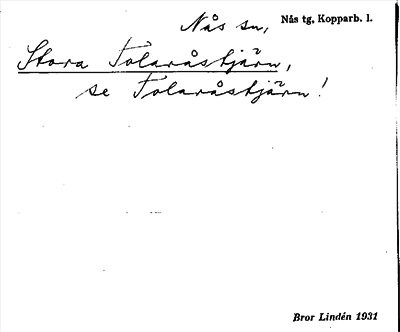 Nås sn, Nås tg, Kopparb. l.
Stora Tolaråstjärn,
se Tolaråstjärn!
Bror Lindén 1931